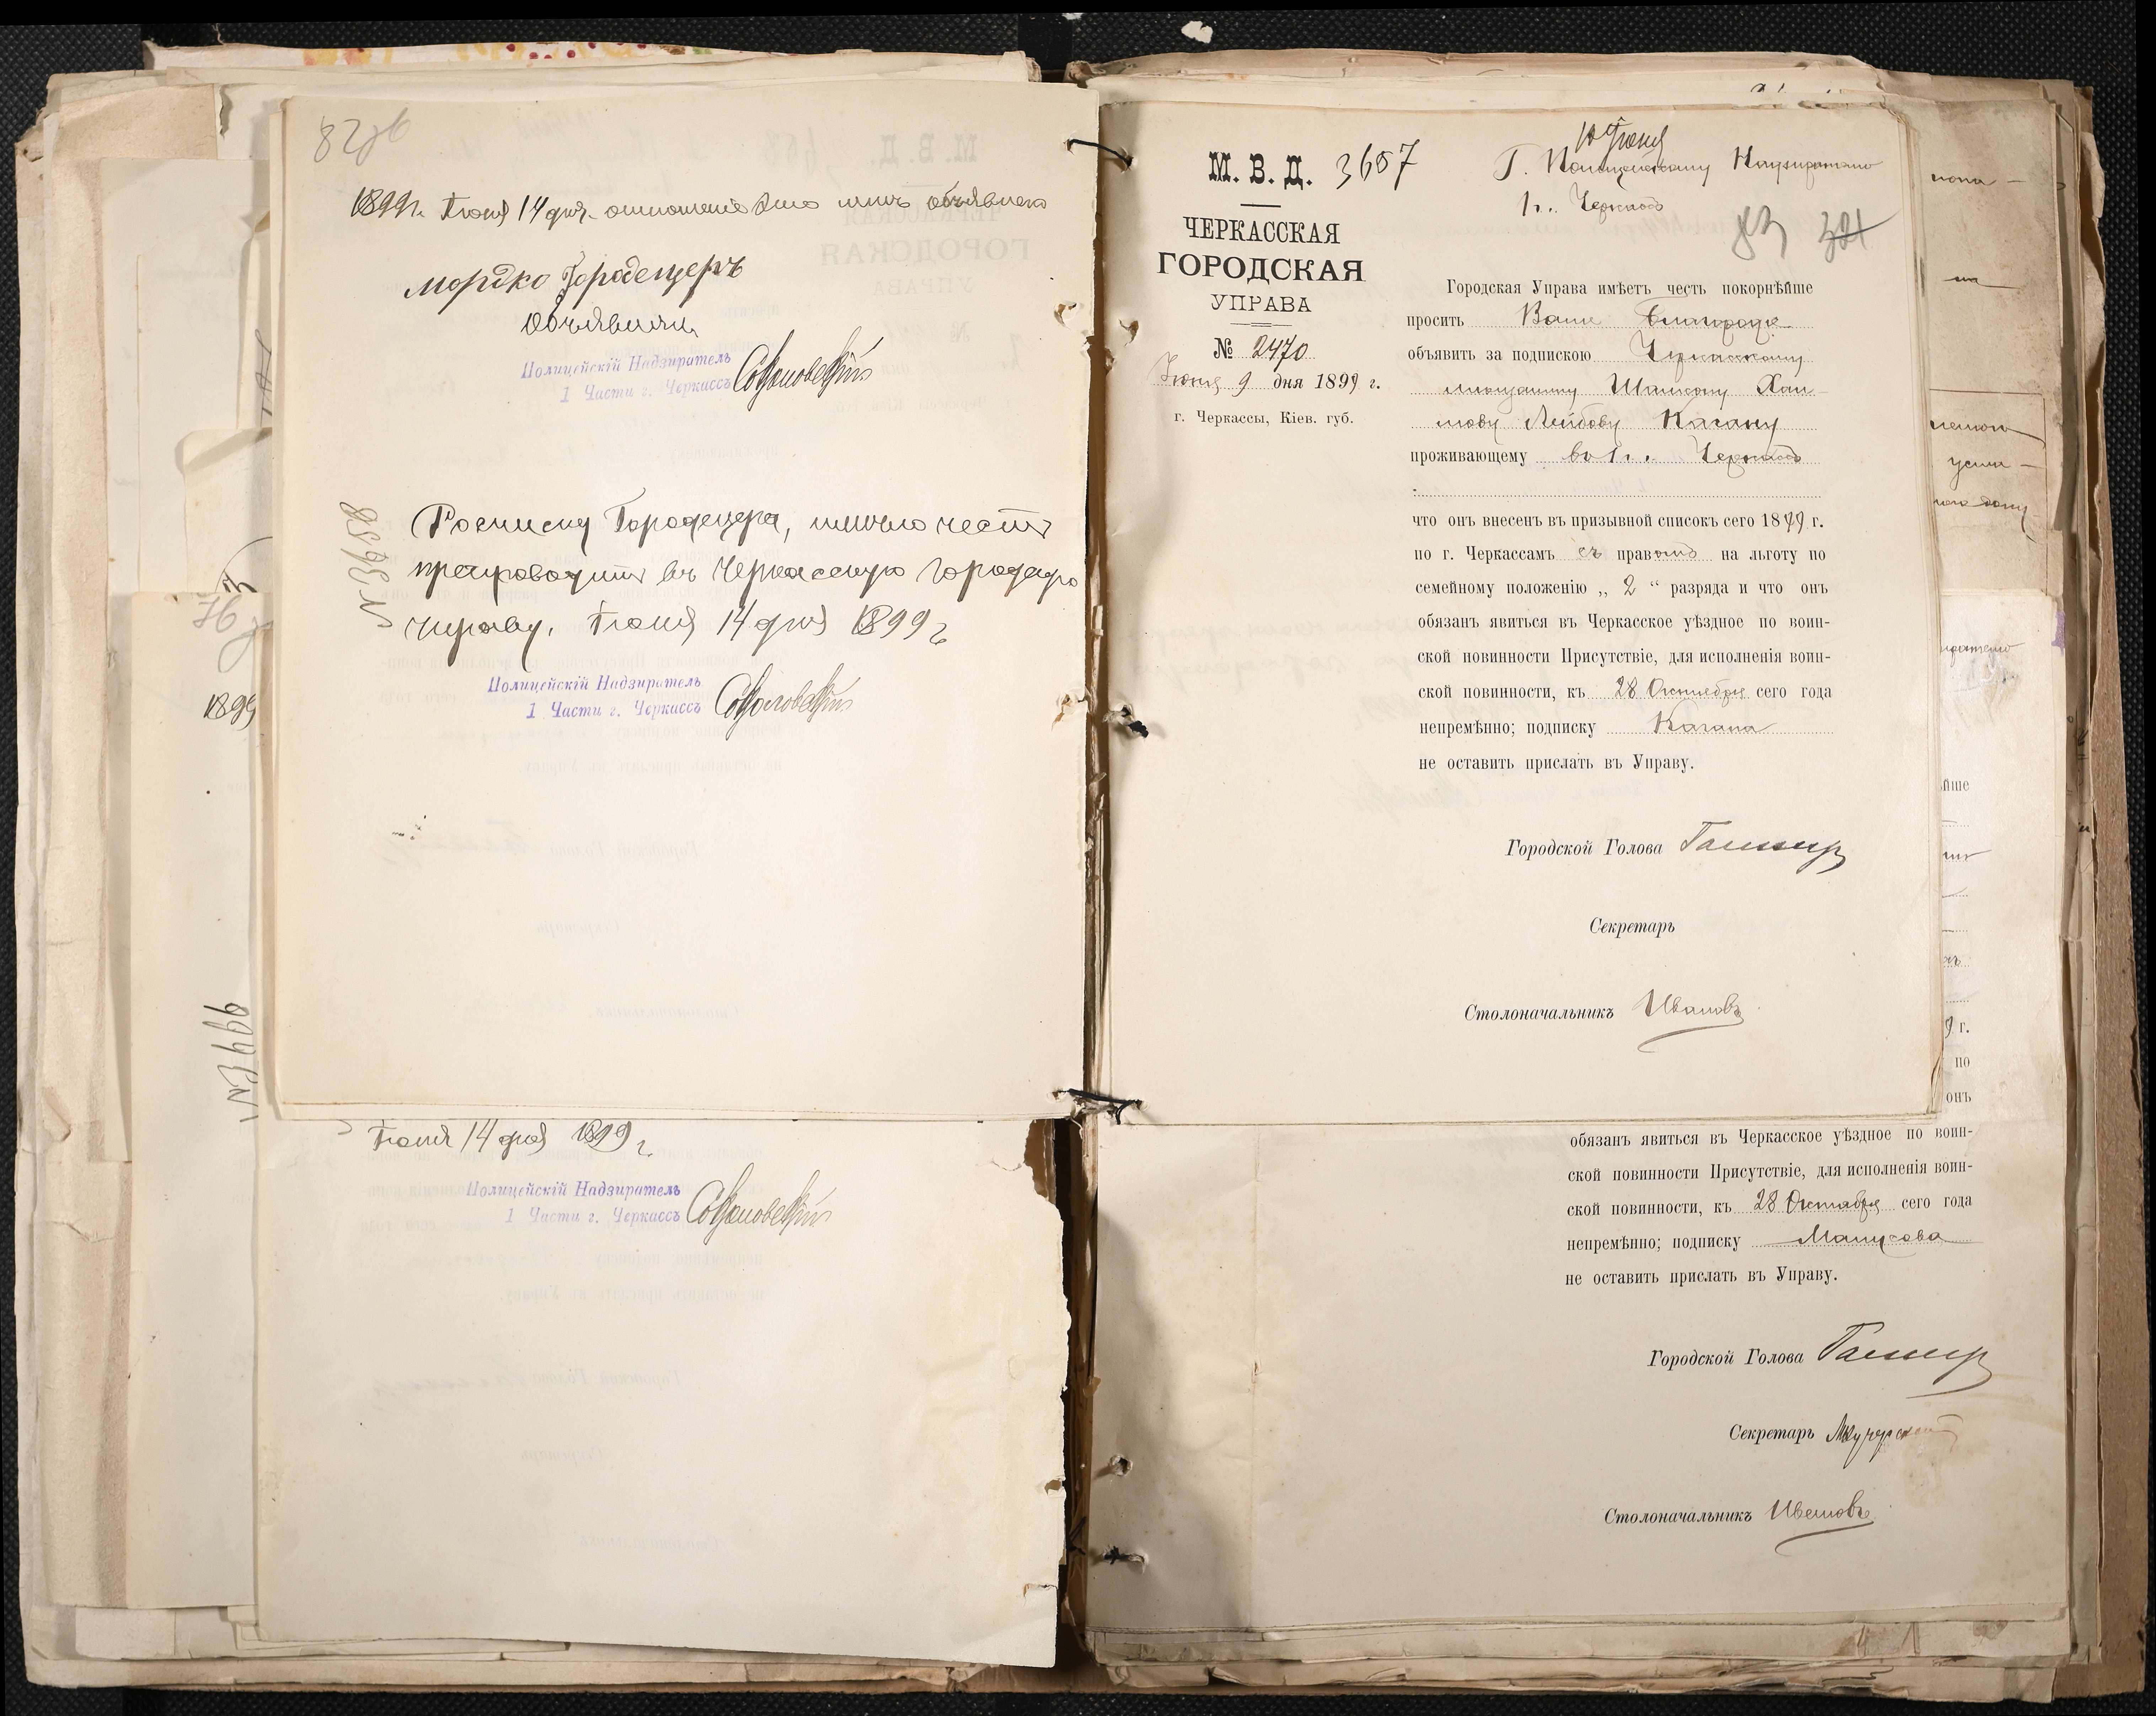 82об
1899 г. Іюня 14 дня отношеніе это мнѣ объявлено
Мордко Городецеръ
Объявилъ
Полицейскій Надзиратель
1 Части г. Черкассъ
Росписку Городецера, имѣю честь
препроводить въ Черкасскую Городскую
Управу. Іюня 14 дня 1899 г.
№ 3658
Полицейскій Надзиратель
1 Части г. Черкассъ
Іюня 14 дня 1899 г.
Полицейскій Надзиратель
1 Части г. Черкассъ
76
1899
М. В. Д. 3657
ЧЕРКАССКАЯ
ГОРОДСКАЯ
УПРАВА
№ 2470
Іюня 9 дня 1899 г.
г. Черкассы, Кіев. губ.
10 Іюня
Г. Полицейскому Надзирателю
1 ч. г. Черкассъ
83 321
Городская Управа имѣетъ честь покорнѣйше
просить Ваше Благородіе
объявить за подпискою Черкасскому
мѣщанину Шимону Хаи-
мову Лейбову Кагану
проживающему въ 1 ч. г. Черкассъ
что онъ внесенъ въ призывной списокъ сего 1899 г.
по г. Черкассамъ съ правомъ на льготу по
семейному положенію „ 2 “ разряда и что онъ
обязанъ явиться въ Черкасское уѣздное по воин-
ской повинности Присутствіе, для исполненія воин-
ской повинности, къ 28 Октября сего года
непремѣнно; подписку Кагана
не оставить прислать въ Управу.
Городской Голова
Секретарь
Столоначальникъ Ивановъ
обязанъ явиться въ Черкасское уѣздное по воин-
ской повинности Присутствіе, для исполненія воин-
ской повинности, къ 28 Октября сего года
непремѣнно; подписку Манусова
не оставить прислать въ Управу.
Городской Голова
Секретарь
Столоначальникъ Ивановъ